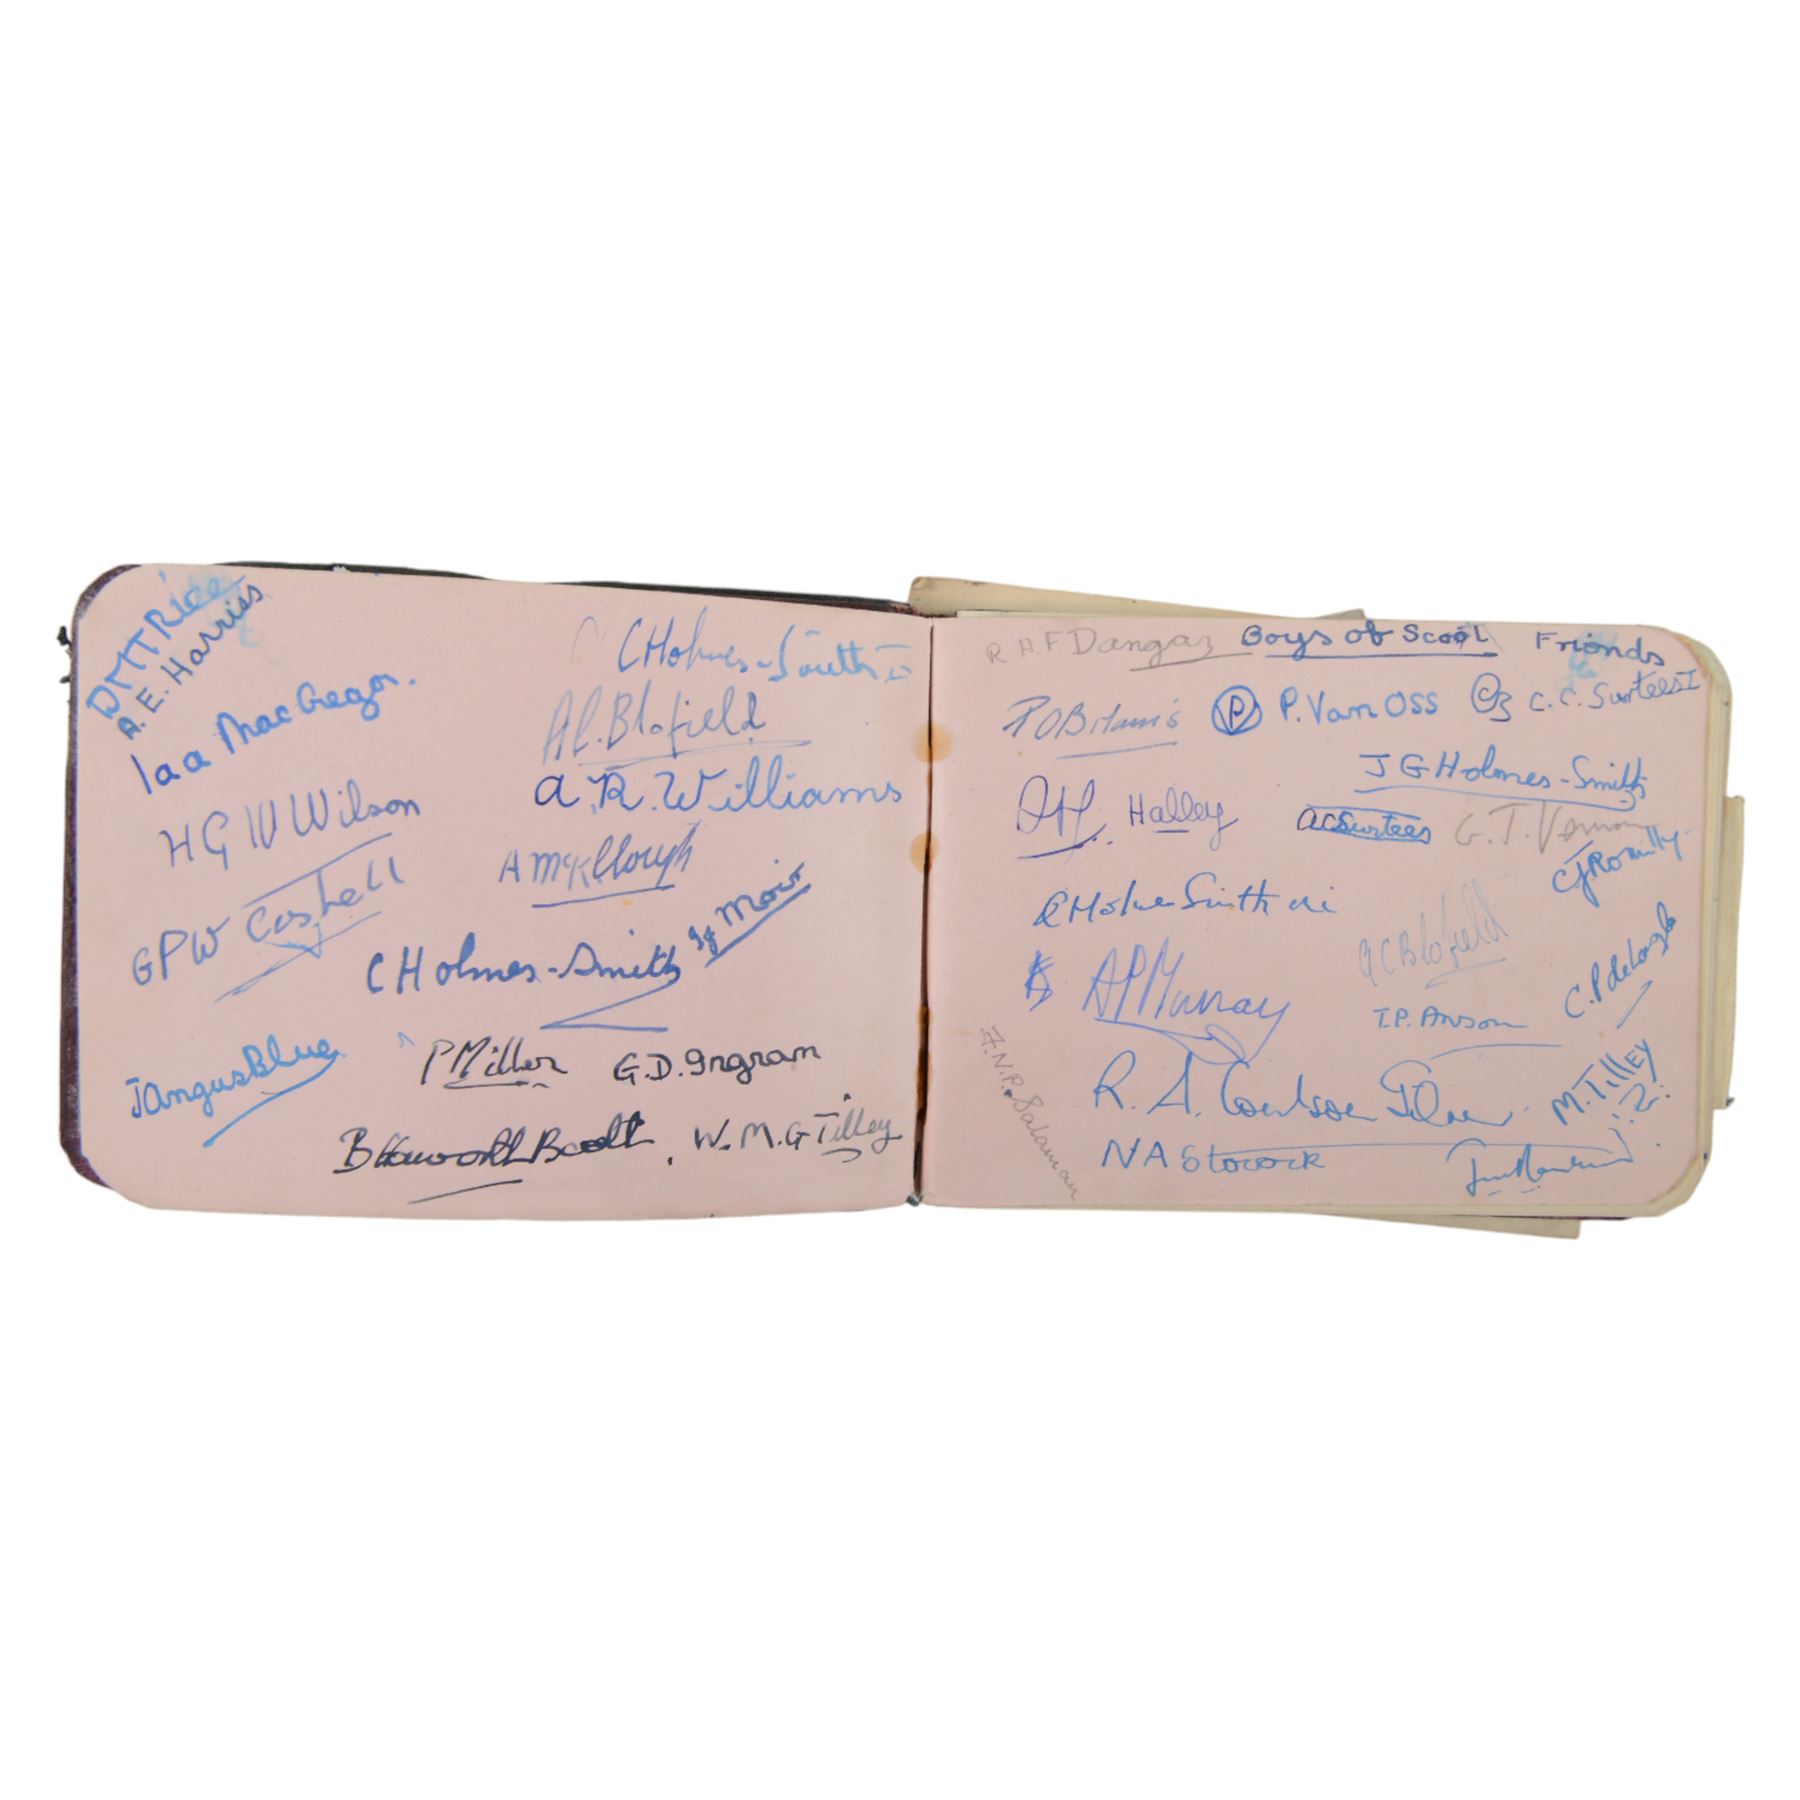 D M T Rice
A. E. Harriss
Iaa MacGregor.
H G W Wilson
GPW Cashell
J Angus Blue
C Holmes-Smith II
A C. Blofield
A. R. Williams
A McK. Clough
C Holmes-Smith
Moir
P Miller
G. D. Ingram
B Haworth Booth
W. M. G Tilley
R A F. Dangar
Boys ob Scool Friends
P O B Harris
P P. Van Oss
C. C. Surtees I
J G Holmes-Smith
Halley
A C Surtees
G. T. Vernon
C J Romilly
C Holmes Smith
A P Murray
A C Blofield
T. P. Anson
C. P de
F. N. P. Salaman
R. A. Coulson
M. TILLEY
N A Stocock